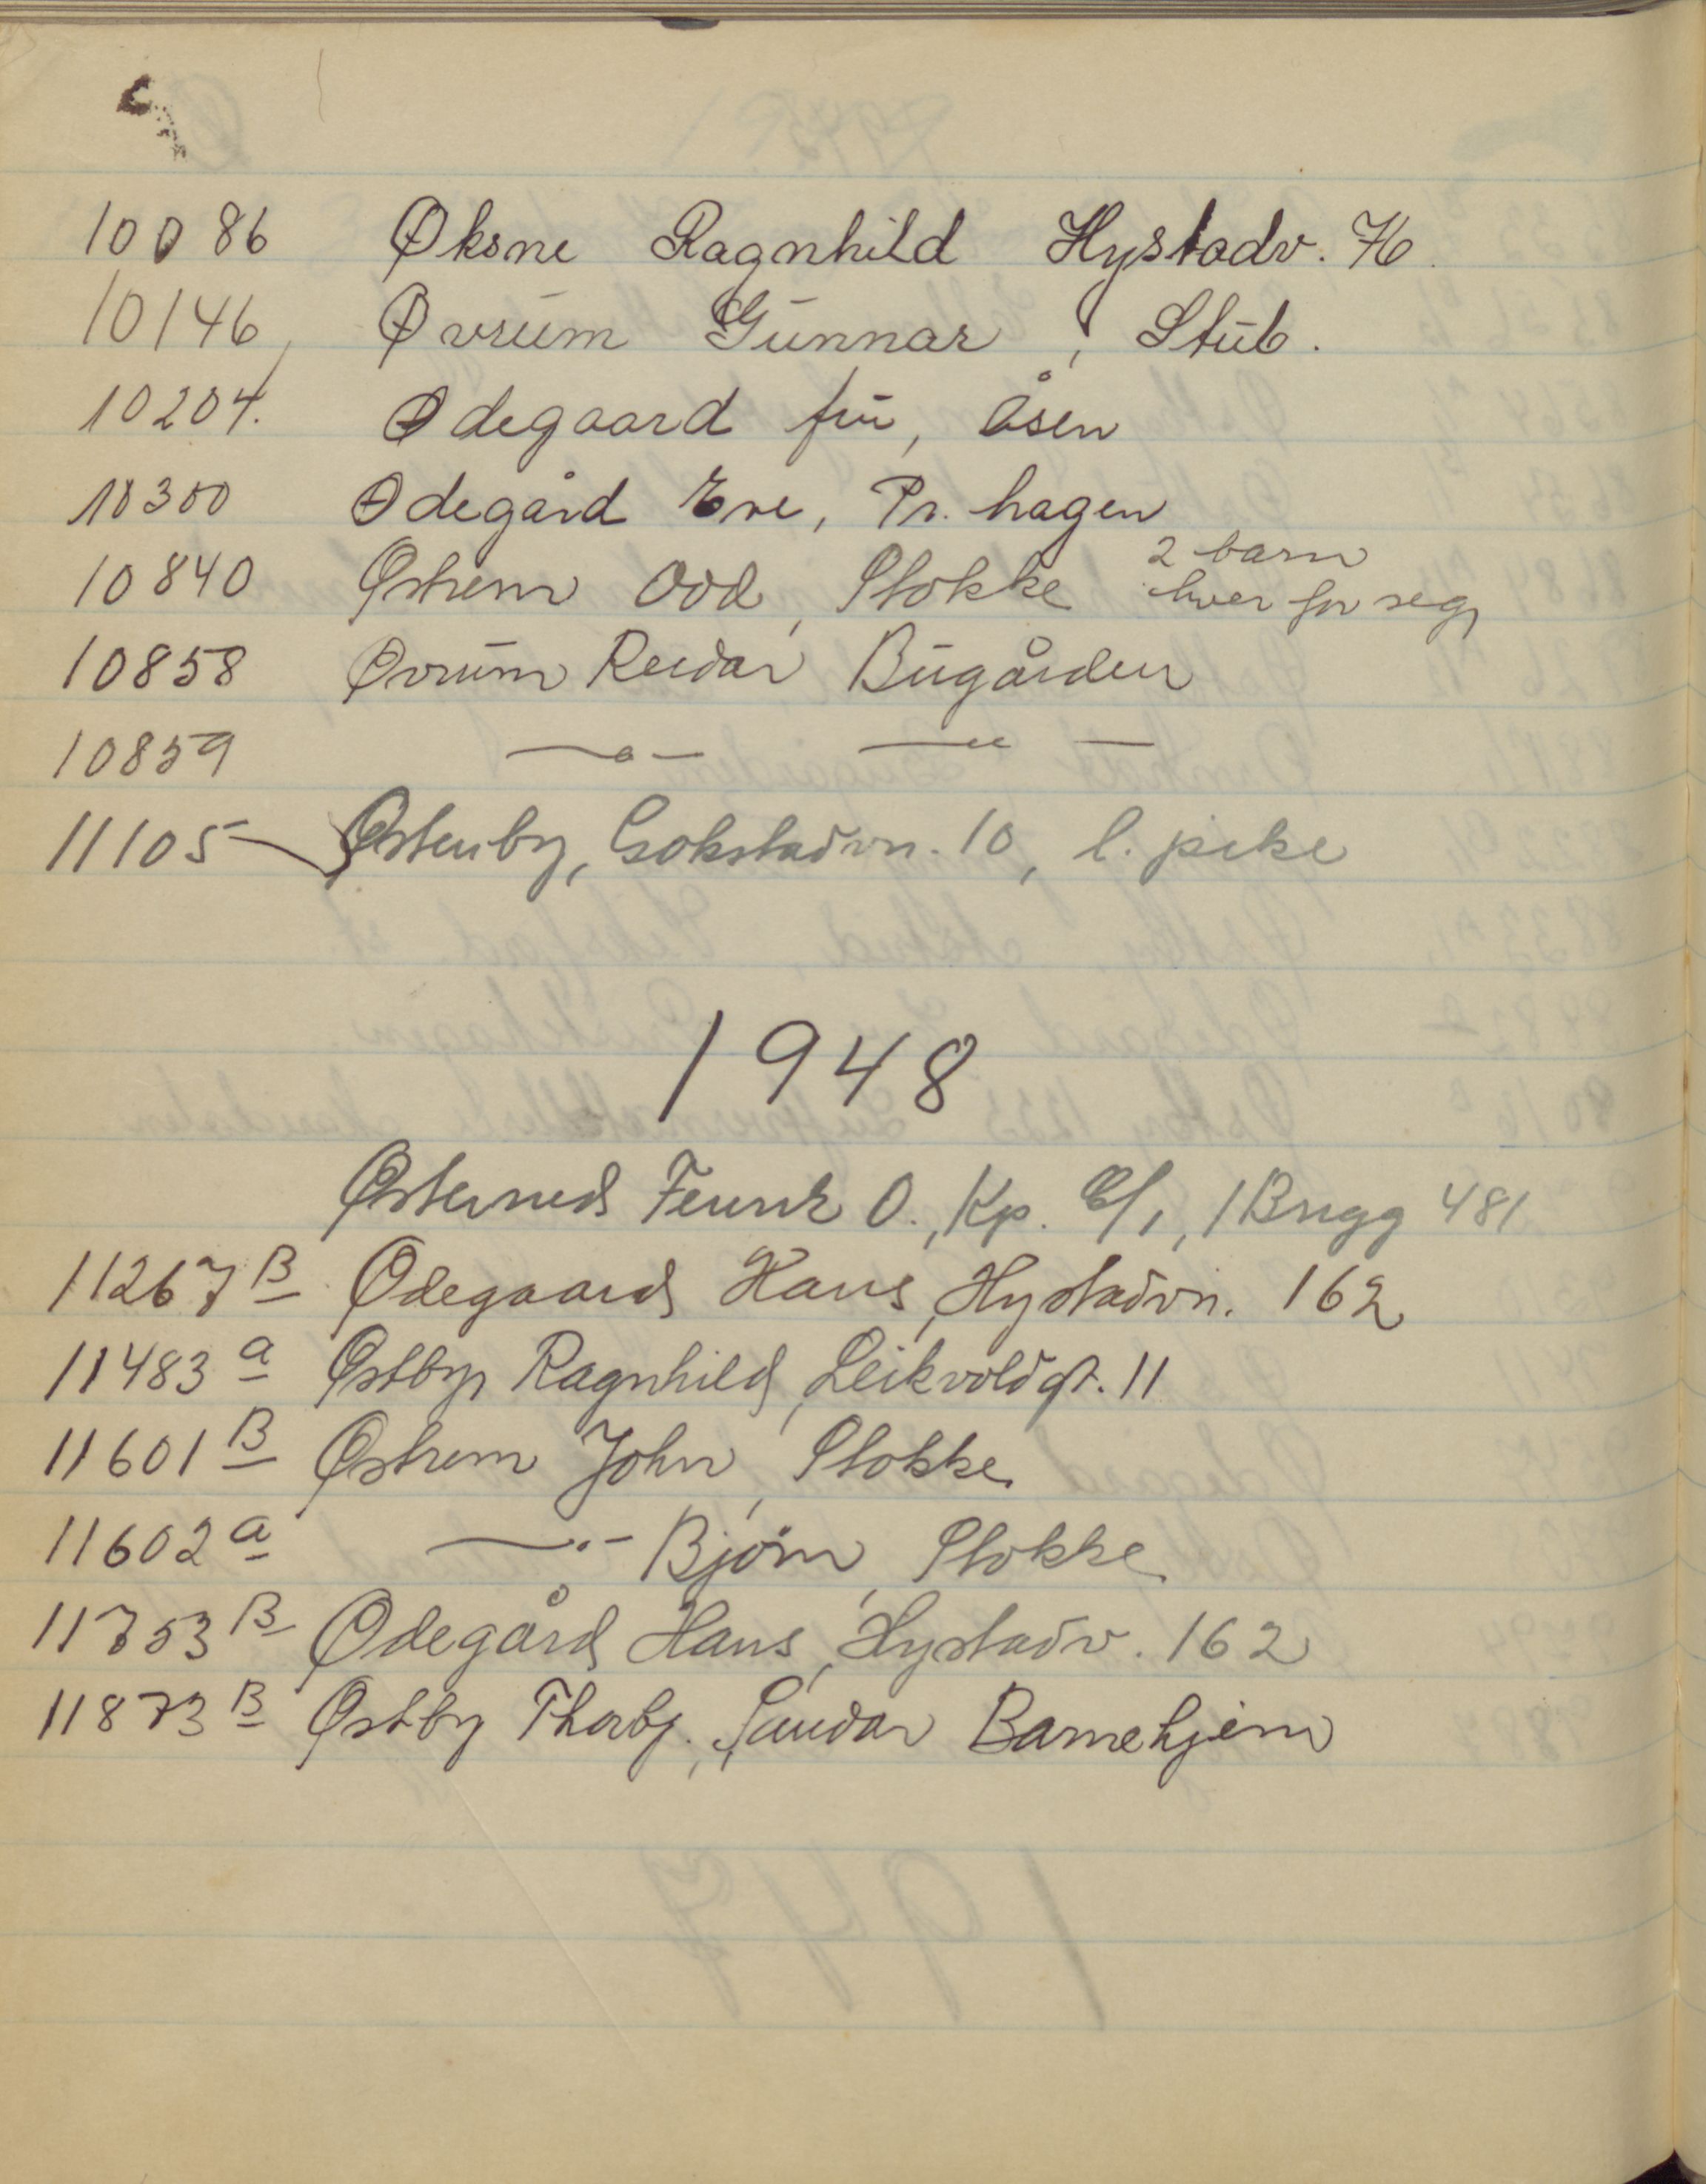 10086 Øksne Ragnhild Hystadv. 76
10146 Øvrum Gunnar, Stub.
10204. Ødegaard fru, Åsen
10300 Ødegård Eve, Pr. hagen
10840 Østrem Odd, Stokke 2 barn
hver for seg
10858 Øvrum Reidar Bugården
10859 —〃— —〃—
11105 Østenby, Gokstadvn. 10, l. pike
1948
Østerned Fenrik O., Kp. 6/1, 1 Brigg 481
11267 B Ødegaard Hans, Hystadvn. 162
11483 a Østby Ragnhild, Leikvoldgt. 11
11601 B Østrem John, Stokke
11602 a —〃— Bjørn, Stokke
11753 B Ødegård Hans, Hystadv. 162
11873 B Østby Thorbj., Sandar Barnehjem